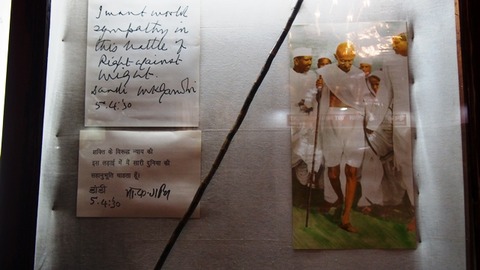 I want world
sympathy in
this battle of
Right against
might.
Dandi mkgandhi
5.4.30
शक्ति के विरुद्ध न्याय की
इस लड़ाई में मैं सारी दुनिया की
सहानुभूति चाहता हूँ।
दांडी मो.क.गांधी
5.4.30